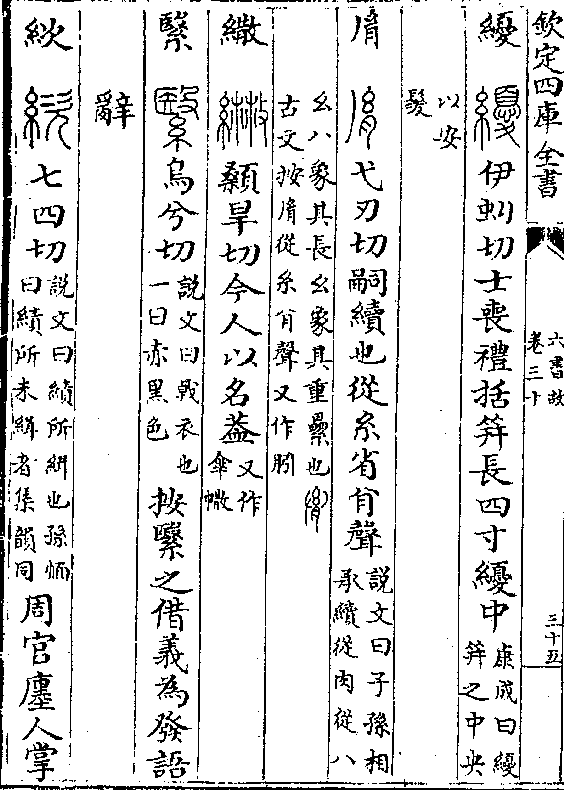 欽定四庫全書
六書故
卷三十
三十五
纋 伊虯切士喪禮括笄長四寸纋中
康成曰纋
笄之中央
以安
髮
㣧 弋刃切嗣續也從糸省聲
說文曰子孫相
承續從肉從八
幺八象其長幺象其重纍也
古文按㣧從糸聲又作
繖 顙旱切今人以名葢
又作
傘
繄 烏兮切
說文曰㦸衣也
一曰赤黑色
按繄之借義為發語
辭
絘 七四切
說文曰績所緝也孫愐
曰績所未緝者集韻同
周官廛人掌